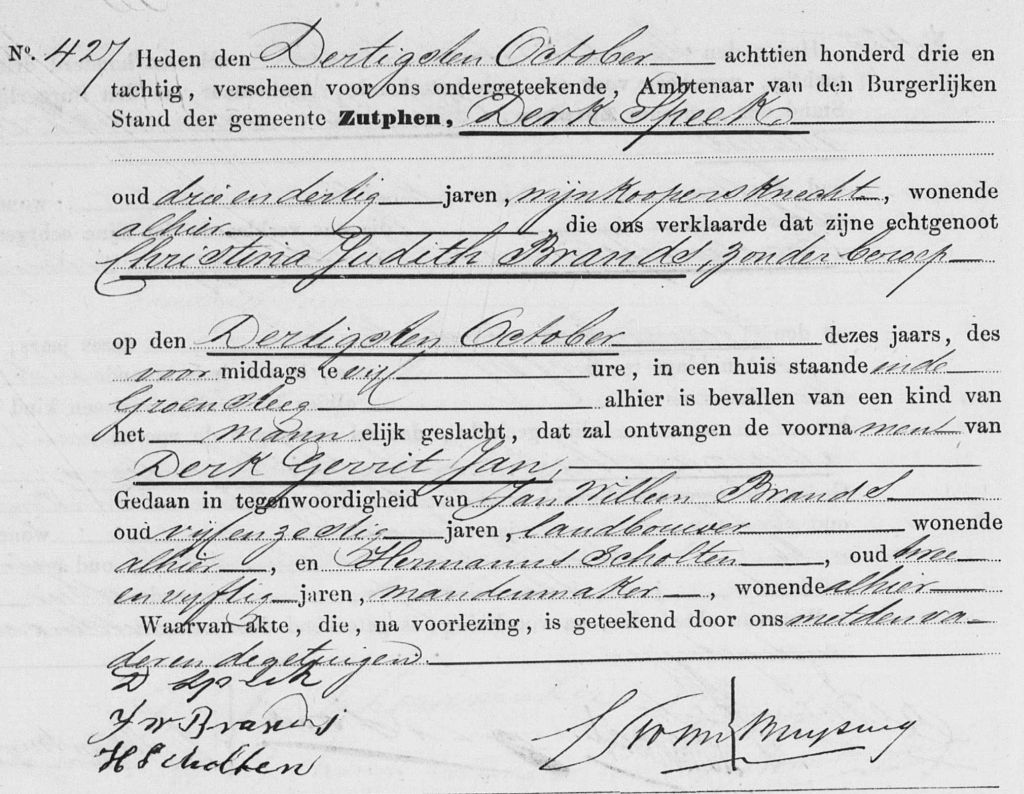 No. 427 Heden den Dertigsten October achttien honderd drie en
tachtig, verscheen voor ons ondergeteekende, Ambtenaar van den Burgerlijken
Stand der gemeente Zutphen, Derk Speek
oud drie en dertig jaren, wijnkoopersknecht, wonende
alhier, die ons verklaarde dat zijne echtgenoot
Christina Judith Brands, zonder beroep
op den Dertigsten October dezes jaars, des
voor middags te vijf ure, in een huis staande in de
Groensteeg alhier is bevallen van een kind van
het mann elijk geslacht, dat zal ontvangen de voorna men van
Derk Gerrit Jan,
Gedaan in tegenwoordigheid van Jan Willem Brands
oud vijf en zestig jaren, landbouwer wonende
alhier, en Hermanus Scholten, oud twee
en vijftig jaren, mandenmaker, wonende alhier
Waarvan akte, die, na voorlezing, is geteekend door ons met den va-
der en de getuigen.
D Speek
J W Brands
H Scholten